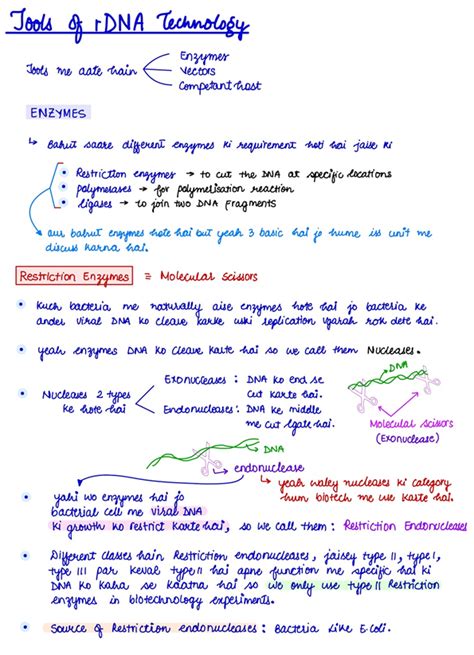 Tools of rDNA Technology
Tools me aate hain
Enzymes
Vectors
Competant host
ENZYMES
↳ Bahut saare different enzymes ki requirement hoti hai jaise ki
• Restriction enzymes → to cut the DNA at specific locations
• polymerases → for polymerisation reaction
• ligases → to join two DNA fragments
aur bahut enzymes hote hai but yeah 3 basic hai jo hume iss unit me
discuss karna hai.
Restriction Enzymes = Molecular scissors
• Kuch bacteria me naturally aise enzymes hote hai jo bacteria ke
ander viral DNA ko cleave karke uski replication vgarah rok dete hai.
• yeah enzymes DNA ko cleave karte hai so we call them Nucleases.
• Nucleases 2 types
ke hote hai
Exonucleases : DNA ko end se
cut karte hai.
Endonucleases : DNA ke middle
me cut lgate hai.
DNA
Molecular scissors
(Exonuclease)
DNA
endonuclease
↳ yeah waley nucleases ki category
hum biotech me use karte hai.
• yahi wo enzymes hai jo
bacterial cell me viral DNA
ki growth ko restrict karte hai, so we call them : Restriction Endonucleases
• Different classes hain Restriction endonucleases, jaisey type II, type I,
type III par keval type II hai apne function me specific hai ki
DNA ko kaha se kaatna hai so we only use type II Restriction
enzymes in biotechnology experiments.
• Source of Restriction endonucleases : Bacteria like E.coli.